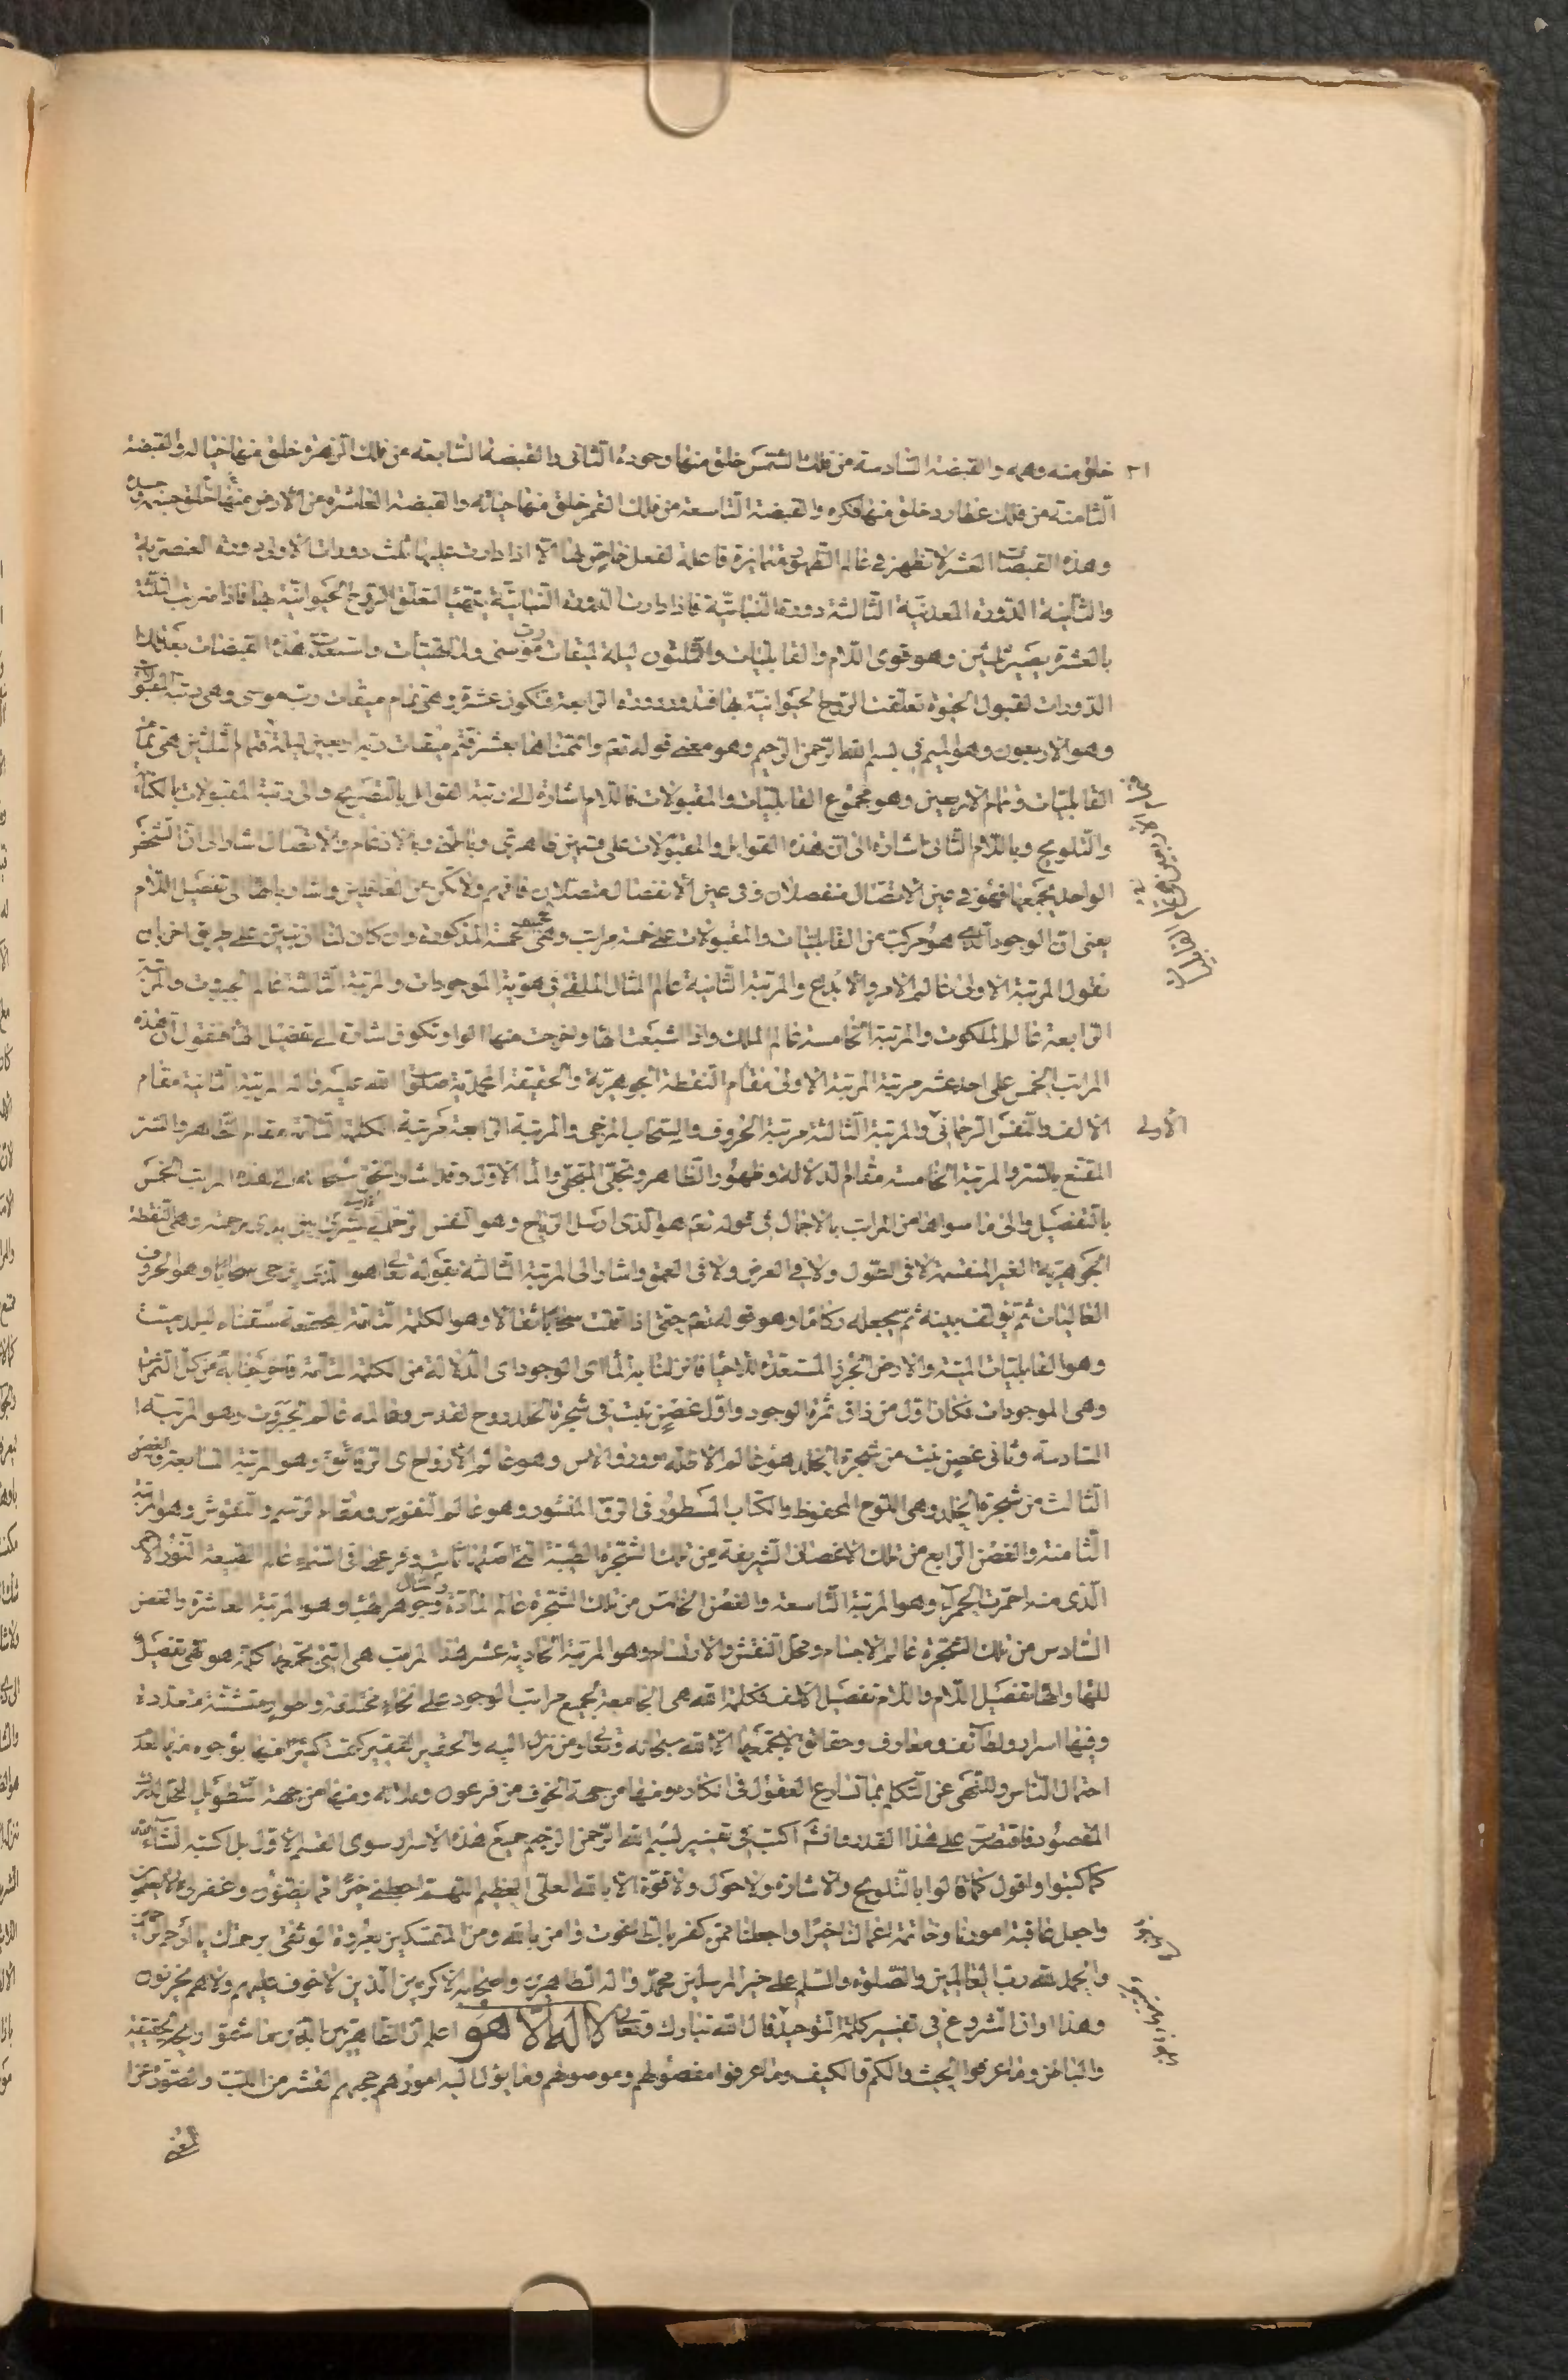 خلق منه وهمه والقبضة السادسة من فلك الشمس خلق منها وجوده الثانی والقبضة السابعة من فلك الزهرة خلق منها خياله والقبضة
الثامنة من فلك عطارد خلق منها فكره والقبضة التاسعة من فلك القمر خلق منها حياته والقبضة العاشرة من الارض منها خلق جسده
وهذه القبضات العشر لا تظهر فی عالم الظهور متمايزة فاعلة لفعل خاص لها الا اذا دارت عليها ثلث دورات الاولى دورة العنصرية
والثانية الدورة المعدنية الثالثة دورة النباتية فاذا دارت الدورة النباتية يتهيأ لتعلق الروح الحيوانية بها فاذا ضربت الثلثة
بالعشرة يصير ثلثين وهو قوى اللام والقابليات والثلثون ليلة لميقات موسى ولما تهيأت واستعدت هذه القبضات بعد تلك
الدورات لقبول الحيوة تعلقت الروح الحيوانية بها فتدور دورة الرابعة فتكون عشرة وهی تمام ميقات رب موسى وهی رتبة المقبولات
وهو الاربعون وهو الميم فی بسم الله الرحمن الرحيم وهو معنى قوله تعم واتممناها بعشر فتم ميقات ربه اربعين ليلة فتمام الثلثين هی تمام
القابليات وتمام الاربعين وهو مجموع القابليات والمقبولات فاللام اشارة الى رتبة القوابل بالتصريح والى رتبة المقبولات بالكناية
والتلويح وباللام الثانی اشارة الى ان هذه القوابل والمقبولات على قسمين ظاهری وباطنی وبالادغام والاتصال اشار الى ان الشخص
الواحد يجمعها فهو فی عين الاتصال منفصلان وفی عين الانفصال متصلان فافهم ولا تكن من الغافلين واشار بالهاء الى تفصيل اللام
يعنی ان الوجود الذی هو مركب من القابليات والمقبولات على خمسة مراتب وهی الخمسة المذكورة وان كان لنا ان نبين على طريق اخر بان
نقول المرتبة الاولى عالم الامر والابداع والمرتبة الثانية عالم المثال الملقى فی هوية الموجودات والمرتبة الثالثة عالم الجبروت والمرتبة
الرابعة عالم الملكوت والمرتبة الخامسة عالم الملك واذا اشبعت الهاء وخرجت منها الواو تكون اشارة الى تفصيل الهاء فنقول ان هذه
المراتب الخمس على احد عشر مرتبة المرتبة الاولى مقام النقطة الجوهرية والحقيقة المحمدية صلى الله عليه واله المرتبة الثانية مقام
الالف والنفس الرحمانی الاولى والمرتبة الثالثة مرتبة الحروف والسحاب المزجی والمرتبة الرابعة مرتبة الكلمة التامة مقام الظاهر والستر
المقنع بالستر والمرتبة الخامسة مقام الدلالة وظهور الظاهر وتجلی المتجلی والماء الاول وقد اشار الحق سبحانه الى هذه المراتب الخمس
بالتفصيل والى ما سواها من المراتب بالاجمال فی قوله تعم هو الذی ارسل الرياح وهو النفس الرحمانی بشرى بين يدی رحمته وهی النقطة
الجوهرية الغير المنقسمة لا فی الطول ولا فی العرض ولا فی العمق واشار الى المرتبة الثالثة بقوله تعالى هو الذی يزجی سحابا وهو الحروف
العاليات ثم يؤلف بينه ثم يجعله ركاما وهو قوله تعم حتى اذا اقلت سحابا ثقالا وهو الكلمة التامة سقناه لبلد ميت
وهو القابليات الميتة والارض الجرز المستعدة للاحياء فانزلنا به الماء ای الوجود ای الدلالة من الكلمة التامة فاخرجنا به من كل الثمرات
وهی الموجودات فكان اول من ذاق ثمرة الوجود واول غصن نبت فی شجرة الخلد روح القدس وعالمه عالم الجبروت وهو المرتبة
السادسة وثانی غصن نبت من شجرة الخلد هو عالم الاظلة وورق الاس وهو عالم الارواح ای الرقائق وهو المرتبة السابعة والغصن
الثالث من شجرة الخلد وهی اللوح المحفوظ والكتاب المسطور فی الرق المنشور وهو عالم النفوس ومقام الرسم والنقوش وهو المرتبة
الثامنة والغصن الرابع من تلك الاغصان الشريفة من تلك الشجرة الطيبة التی اصلها ثابت وفرعها فی السماء عالم الطبيعة النور الاحمر
الذی منه احمرت الحمرة وهو المرتبة التاسعة والغصن الخامس من تلك الشجرة عالم المادة وجوهر الهباء وهو المرتبة العاشرة والغصن
السادس من تلك الشجرة عالم الاجسام ومحل النقش والارتسام وهو المرتبة الحادية عشر هذه المراتب هی التی تجمعها كلمة هو فهی تفصيل
للهاء والهاء تفصيل اللام واللام تفصيل الالف فكلمة الله هی الجامعة لجميع مراتب الوجود على انحاء مختلفة واطوار متشتتة متعددة
وفيها اسرار ولطائف ومعارف وحقائق لا يجمعها الا الله سبحانه وتعالى ومن نزل اليه والحقير الفقير كتمت كثيرا منها بوجوه منها لعدم
احتمال الناس وللنهی عن التكلم بما تسارع العقول فی انكاره ومنها من جهة الخوف من فرعون وملائه ومنها من جهة التطويل المخل
المقصود فاقتصرت على هذا القدر اكتب فی تفسير بسم الله الرحمن الرحيم جميع هذه الاسرار سوى القسم الاول بل اكتبه انشاء الله
كما كتبوا واقول كما قالوا بالتلويح والاشارة ولا حول ولا قوة الا بالله العلی العظيم اللهم اجعلنی خيرا مما يظنون واغفر لی ما لا يعلمون
واجعل عاقبة امورنا وخاتمة اعمالنا خيرا واجعلنا ممن كفر بالطاغوت وامن بالله ومن المتمسكين بعروة الوثقى برحمتك يا ارحم الراحمين
والحمد لله رب العالمين والصلوة والسلم على خير المرسلين محمد واله الطاهرين واصحابه الاكرمين الذين لا خوف عليهم ولا هم يحزنون
وهذا اوان الشروع فی تفسير كلمة التوحيد قال الله تبارك وتعالى لا اله الا هو اعلم ان الظاهريين الذين ما شموا ريح الحقيقة
والباطن وما عرفوا الحيث والكم والكيف وما عرفوا مفصولهم وموصولهم وما يؤل اليه امورهم حجبهم القشر من اللب والصور عن
المعنی